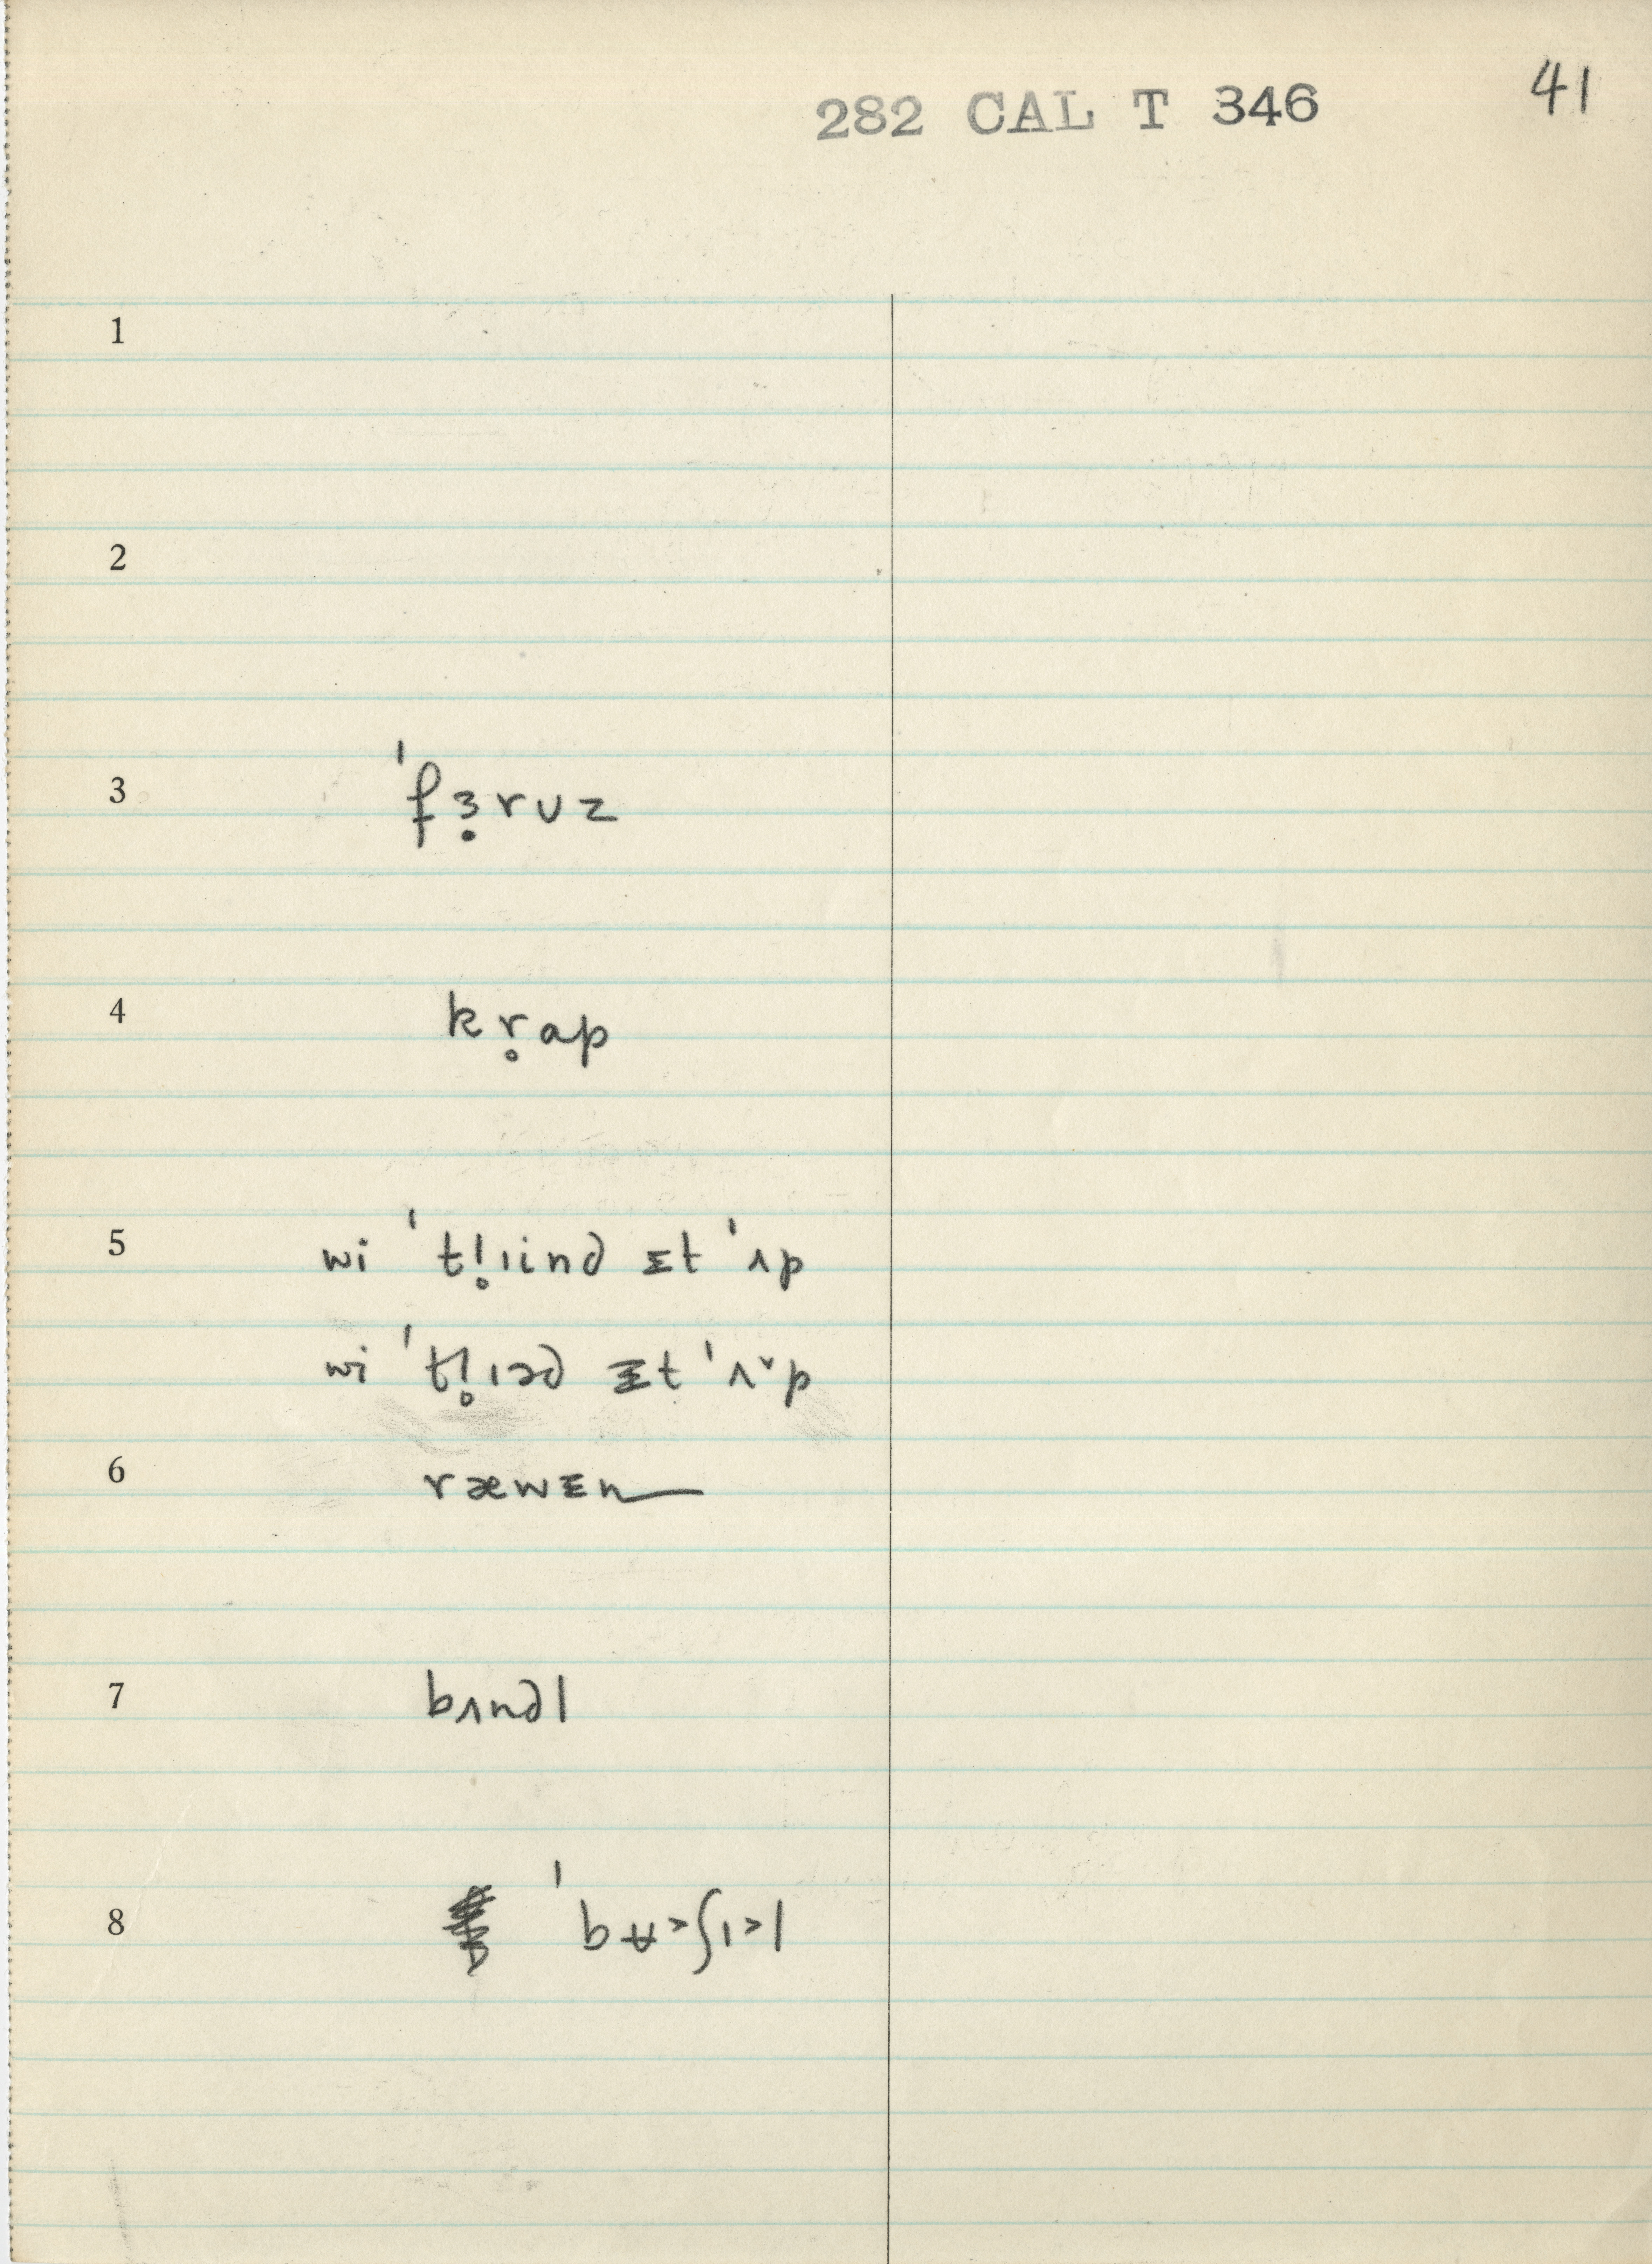 282 CAL T 346 41
1
2
3 ˈfɜ̣ruz
4 kr̥ap
5 wi ˈtl̥ɪind ɪt ˈʌp
wi ˈtl̥ɪəd ɪt ˈʌˇp
6 ræwɪn
7 bʌndl
8 ˈbʉ˃˂ʃɪ˃l